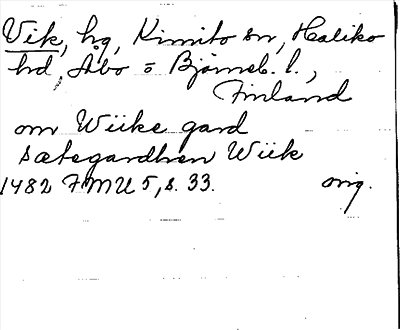 Vik, hg, Kimito sn, Haliko
hd, Åbo o Björneb. l.,
Finland
om Wiike gard
sætegardhen Wiik
1482 FMU 5, s. 33. orig.